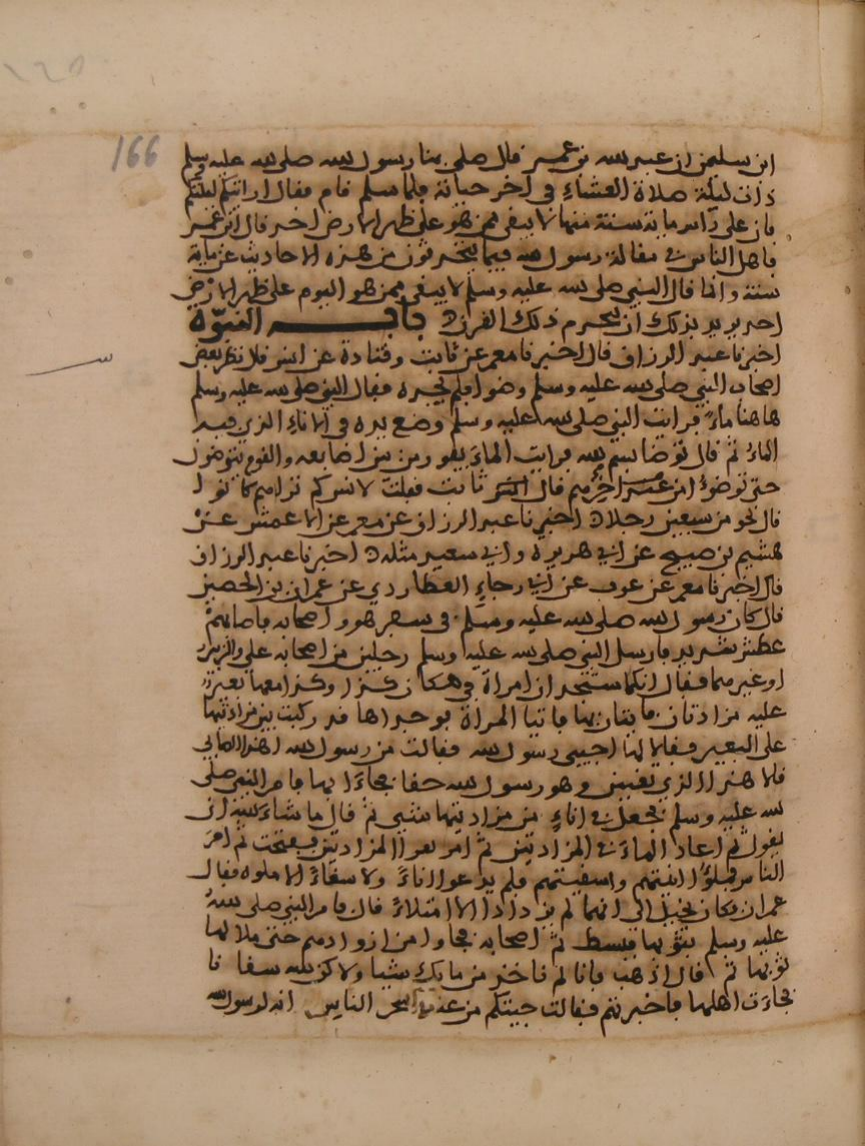 ١٦٥
166
ابن سليمن ان عبد الله بن عمر قال صلى بنا رسول الله صلى الله عليه وسلم
ذات ليلة صلاة العشاء في اخر حياته فلما سلم قام فقال ارايتكم ليلتكم
فان على راس ماية سنة منها لا يبقى ممن هو على ظهر الارض احد قال ابن عمر
فاهل الناس في مقالة رسول الله فيما يتحدثون من هذه الاحاديث عن ماية
سنة وانما قال النبي صلى الله عليه وسلم لا يبقى ممن هو اليوم على ظهر الارض
احد يريد بذلك ان ينخرم ذلك القرن باب النبوة
اخبرنا عبد الرزاق قال اخبرنا معمر عن ثابت وقتادة عن انس قال نظر بعض
اصحاب النبي صلى الله عليه وسلم وضوا فلم يجده فقال النبي صلى الله عليه وسلم
هاهنا ماء فرايت النبي صلى الله عليه وسلم وضع يده في الاناء الذي فيه
الماء ثم قال توضا بسم الله فرايت الماء يفور من بين اصابعه والقوم يتوضون
حتى توضوا من عند اخرهم قال ثابت فقلت لانس كم تراهم كانوا
قال نحو من سبعين رجلا اخبرنا عبد الرزاق عن معمر عن الاعمش عن
هشيم بن صبيح عن ابي هريرة وابي سعيد مثله اخبرنا عبد الرزاق
قال اخبرنا معمر عن عوف عن ابي رجاء العطاردي عن عمران بن الحصين
قال كان رسول الله صلى الله عليه وسلم في سفر هو واصحابه فاصابهم
عطش شديد فارسل النبي صلى الله عليه وسلم رجلين من اصحابه علي والزبير
او غيرهما فقال انكما ستجدان امراة في مكان كذا وكذا معها بعير
عليه مزادتان فاتيان بها فاتيا المراة فوجداها قد ركبت بين مزادتيها
على البعير فقالا لها اجيبي رسول الله فقالت من رسول الله اهذا الصابي
قالا هذا الذي تعنين وهو رسول الله حقا فجاءا بها فامر النبي صلى
الله عليه وسلم فجعل في اناء من مزادتيها شيي ثم قال ما شاء الله ان
يقول ثم اعاد الماء في المزادتين ثم امر بعزا المزادتين ففتحت ثم امر
الناس فملؤا انيتهم واسقيتهم فلم يدعوا اناء ولا سقاء الا ملوه فقال
عمران فكان يخيل الي انهما لم يزدادا الا امتلاء قال فامر النبي صلى الله
عليه وسلم بثوبها فبسط ثم اصحابه فجاوا من ازوادهم حتى ملا لها
ثوبها ثم قال اذهب فانا لم ناخذ من مايك شيا ولاكن الله سقانا
فجاءت اهلها فاخبرتهم فقالت جيتكم من عند اسحر الناس انه لرسول الله